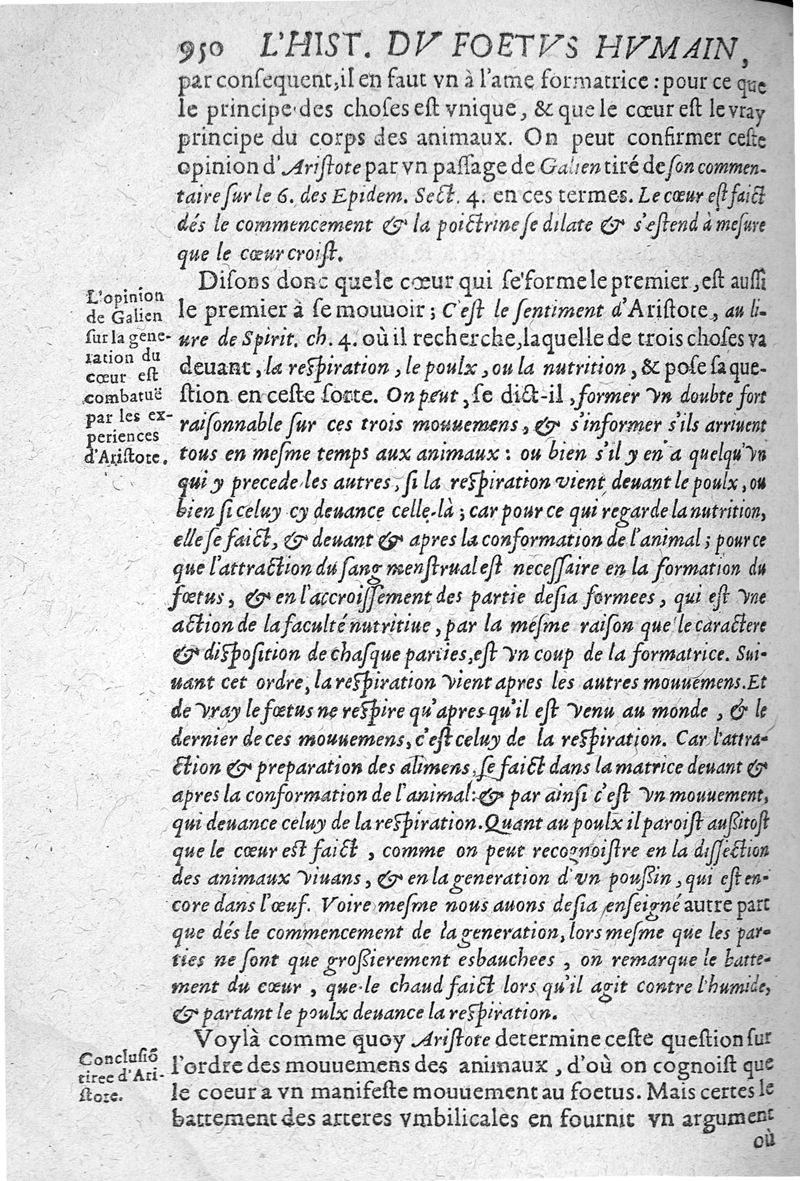 950 L'HIST. DV FOETVS HVMAIN,
par conſequent, il en faut vn à l'ame formatrice : pour ce que
le principe des choſes eſt vnique, & que le cœur eſt le vray
principe du corps des animaux. On peut confirmer ceſte
opinion d'Ariſtote par vn paſſage de Galien tiré de ſon commen-
taire ſur le 6. des Epidem. Sect. 4. en ces termes. Le cœur eſt faict
dés le commencement & la poictrine ſe dilate & s'eſtend à meſure
que le cœur croiſt.
Diſons donc que le cœur qui ſe forme le premier, eſt auſſi
le premier à ſe mouuoir ; C'eſt le ſentiment d'Ariſtote, au li-
ure de Spirit. ch. 4. où il recherche, laquelle de trois choſes va
deuant, la reſpiration, le poulx, ou la nutrition, & poſe ſa que-
ſtion en ceſte ſorte. On peut, ſe dict-il, former vn doubte fort
raiſonnable ſur ces trois mouuemens, & s'informer s'ils arriuent
tous en meſme temps aux animaux : ou bien s'il y en a quelqu'vn
qui y precede les autres, ſi la reſpiration vient deuant le poulx, ou
bien ſi celuy cy deuance celle-là ; car pour ce qui regarde la nutrition,
elle ſe faict, & deuant & apres la conformation de l'animal ; pour ce
que l'attraction du ſang menſtrual eſt neceſſaire en la formation du
fœtus, & en l'accroiſſement des partie deſia formees, qui eſt vne
action de la faculté nutritiue, par la meſme raiſon que le caractere
& diſpoſition de chaſque parties, eſt vn coup de la formatrice. Sui-
uant cet ordre, la reſpiration vient apres les autres mouuemens. Et
de vray le fœtus ne reſpire qu'apres qu'il eſt venu au monde, & le
dernier de ces mouuemens, c'eſt celuy de la reſpiration. Car l'attra-
ction & preparation des alimens, ſe faict dans la matrice deuant &
apres la conformation de l'animal : & par ainſi c'eſt vn mouuement,
qui deuance celuy de la reſpiration. Quant au poulx il paroiſt auſſitoſt
que le cœur eſt faict, comme on peut recognoiſtre en la diſſection
des animaux viuans, & en la generation d'vn pouſſin, qui eſt en-
core dans l'œuf. Voire meſme nous auons deſia enſeigné autre part
que dés le commencement de la generation, lors meſme que les par-
ties ne ſont que groſſierement esbauchees, on remarque le batte-
ment du cœur, que le chaud faict lors qu'il agit contre l'humide,
& partant le poulx deuance la reſpiration.
Voylà comme quoy Ariſtote determine ceſte queſtion ſur
l'ordre des mouuemens des animaux, d'où on cognoiſt que
le coeur a vn manifeſte mouuement au foetus. Mais certes le
battement des arteres vmbilicales en fournit vn argument
où
L'opinion
de Galien
ſur la gene-
ration du
cœur eſt
combatuë
par les ex-
periences
d'Ariſtote.
Concluſiõ
tiree d'Ari-
ſtote.